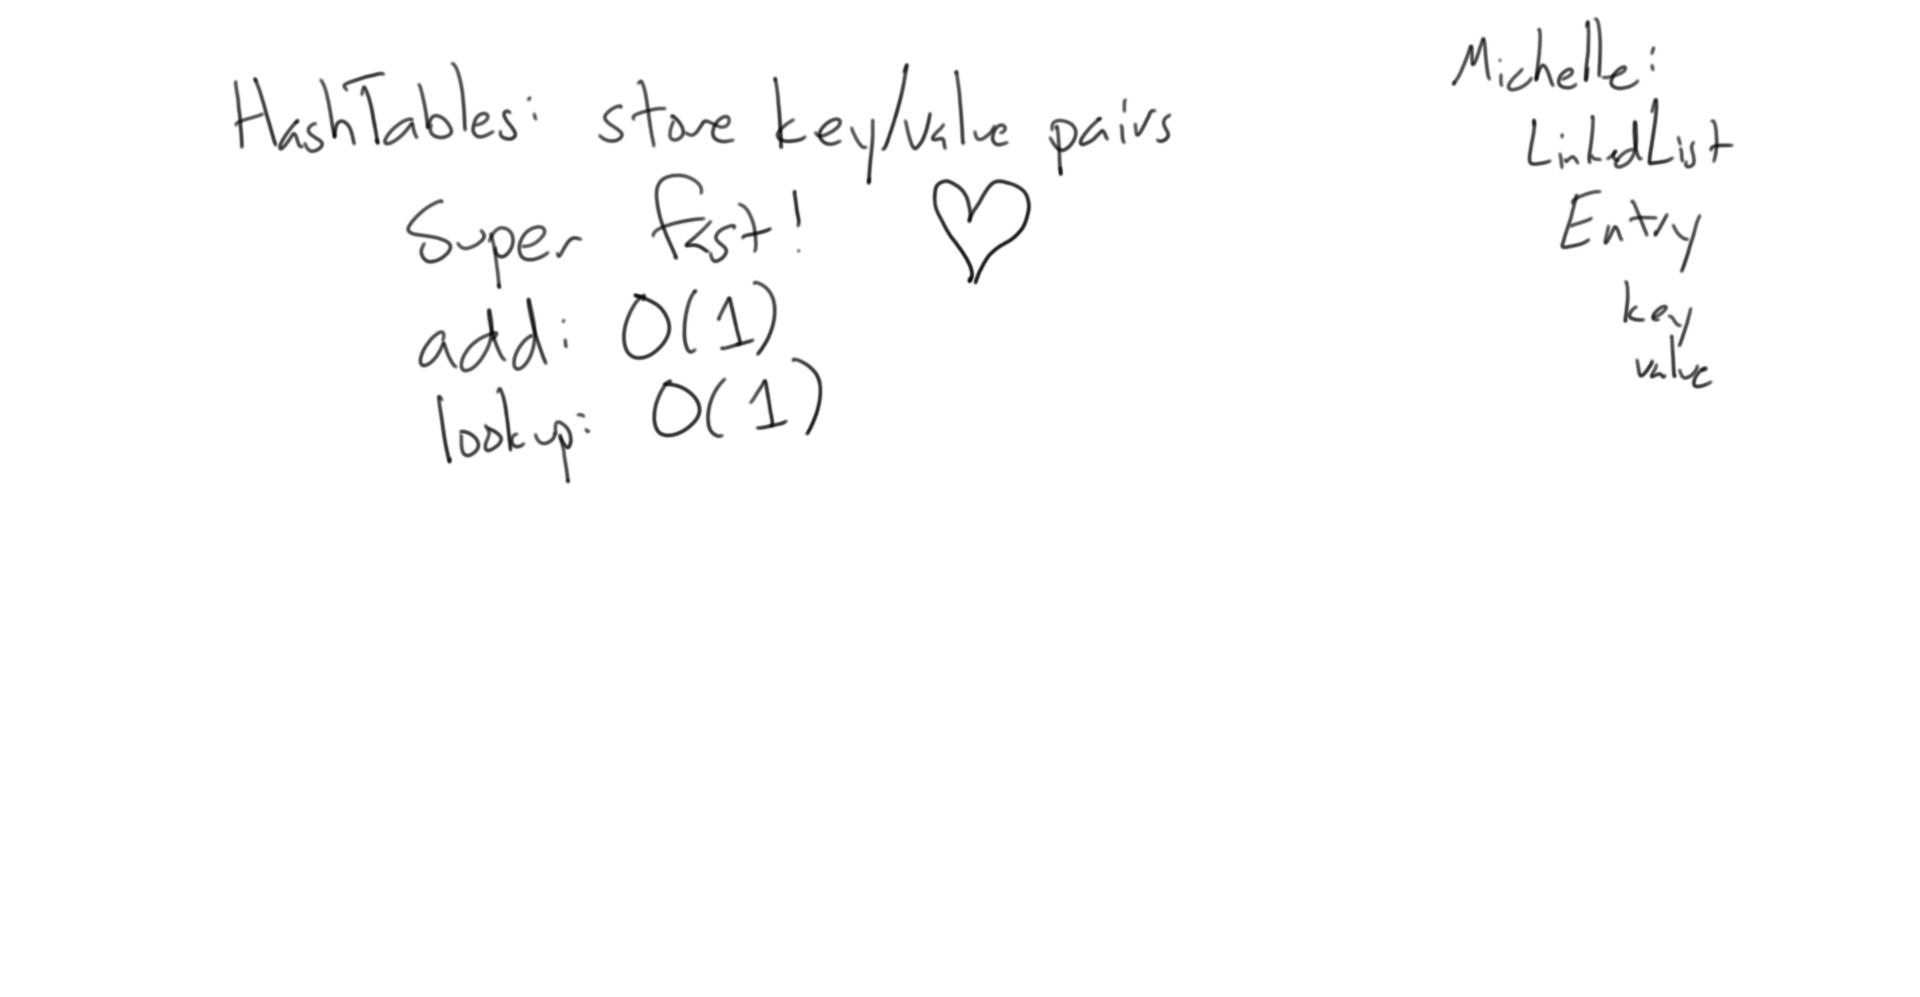 HashTables: store key/value pairs
Super fast!
add: O(1)
lookup: O(1)
Michelle:
LinkedList
Entry
key
value